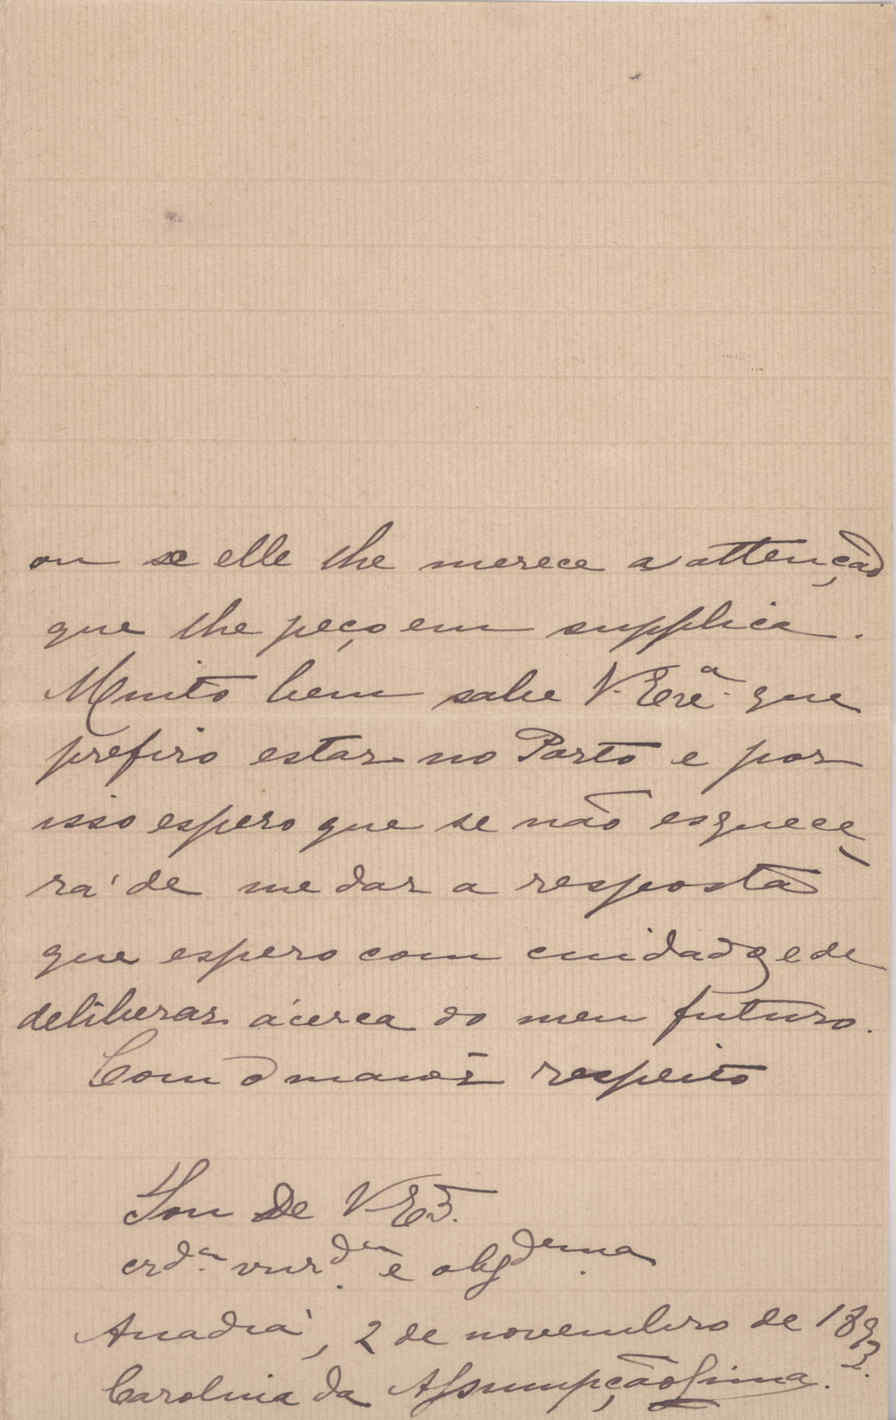 ou se elle lhe merece a attenção
que lhe peço em supplica.
Muito bem sabe V. Exª. que
prefiro estar no Porto e por
isso espero que se não esquece
rá de me dar a resposta
que espero com cuidado e de
deliberar ácerca do meu futuro.
Com o maior respeito
Sou De V. E
crdª. vnrdª. e obgdma
Anadia, 2 de novembro de 1893.
Carolina da Assumpção Lima.